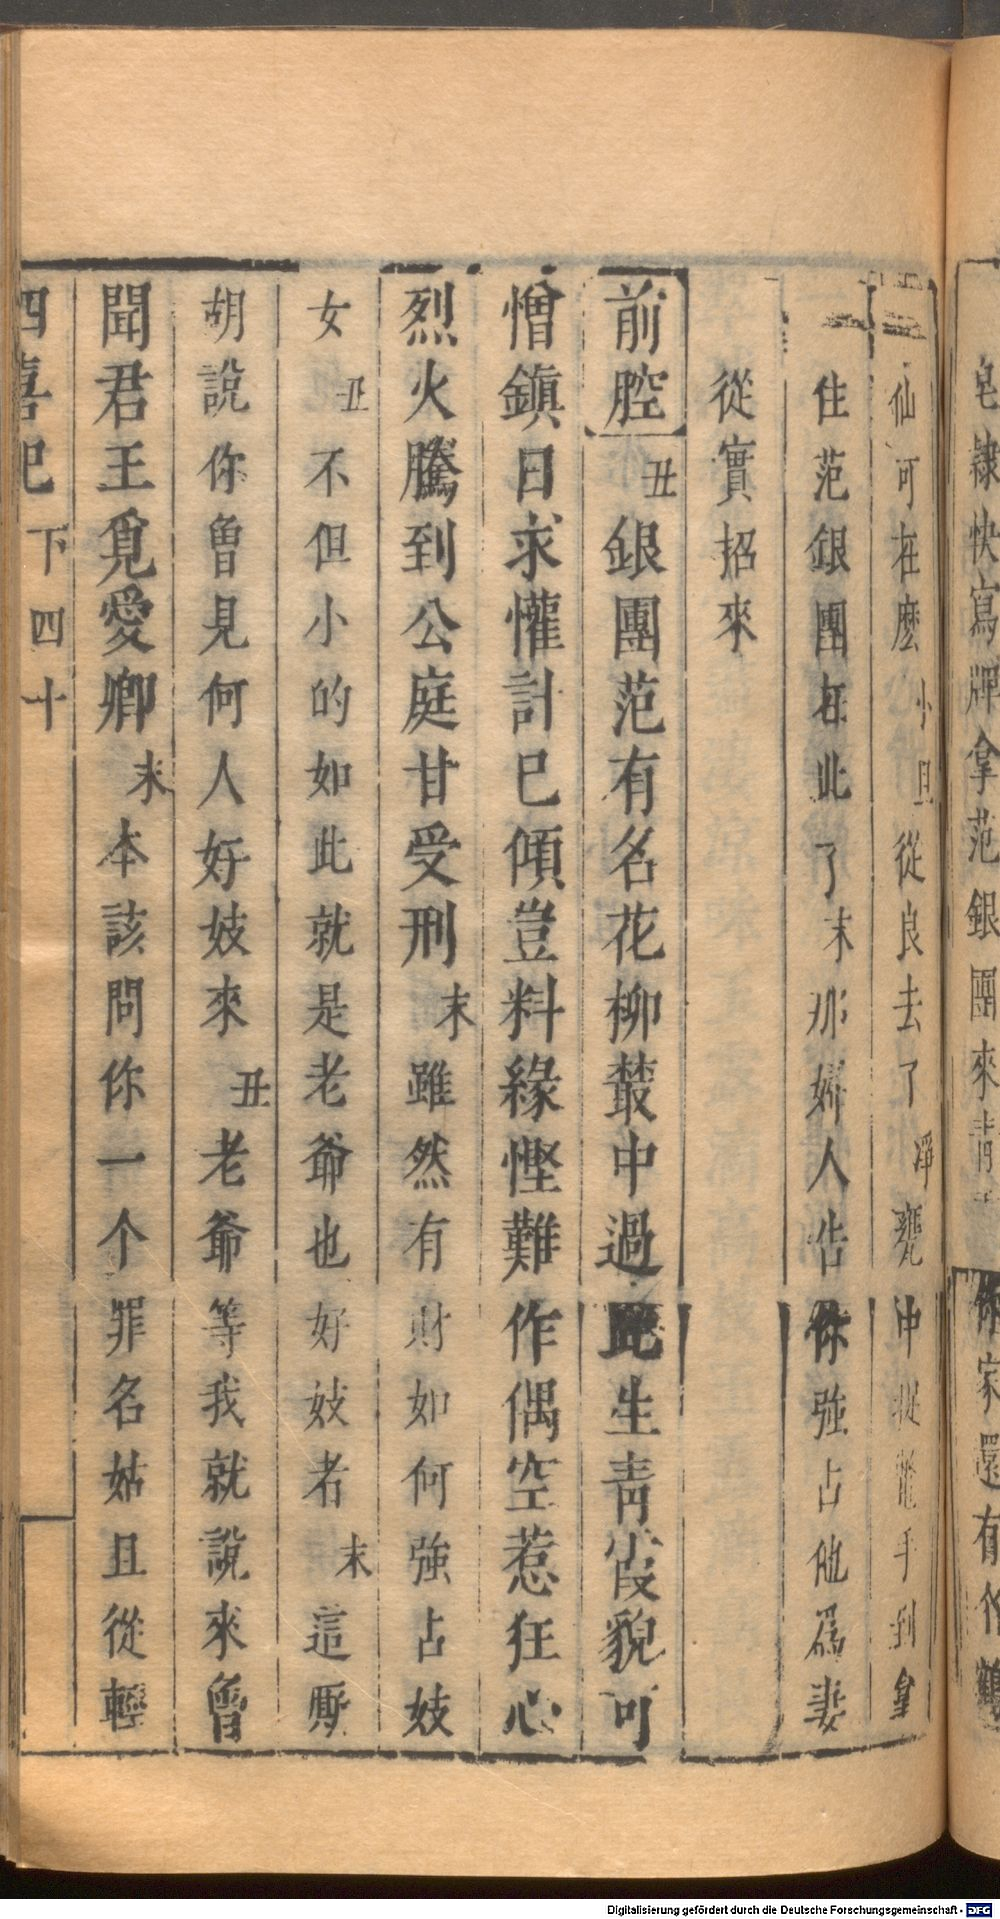 皂隸快寫牌拿范銀團來青
你家還有
仙可在麼小旦從良去了淨甕中捉鱉手到拿
住范銀團在此了末那婦人告你強占他爲妻
從實招來
前腔丑銀團范有名花柳叢中過此生青霞貌可
憎鎮日求懽計已傾豈料緣慳難作偶空惹狂心
烈火騰到公庭甘受刑末雖然有財如何強占妓
女丑不但小的如此就是老爺也好妓者末這厮
胡說你曾見何人好妓來丑老爺等我就說來曾
聞君王覓愛卿末本該問你一个罪名姑且從輕
四喜記 下 四十
Digitalisierung gefördert durch die Deutsche Forschungsgemeinschaft - DFG